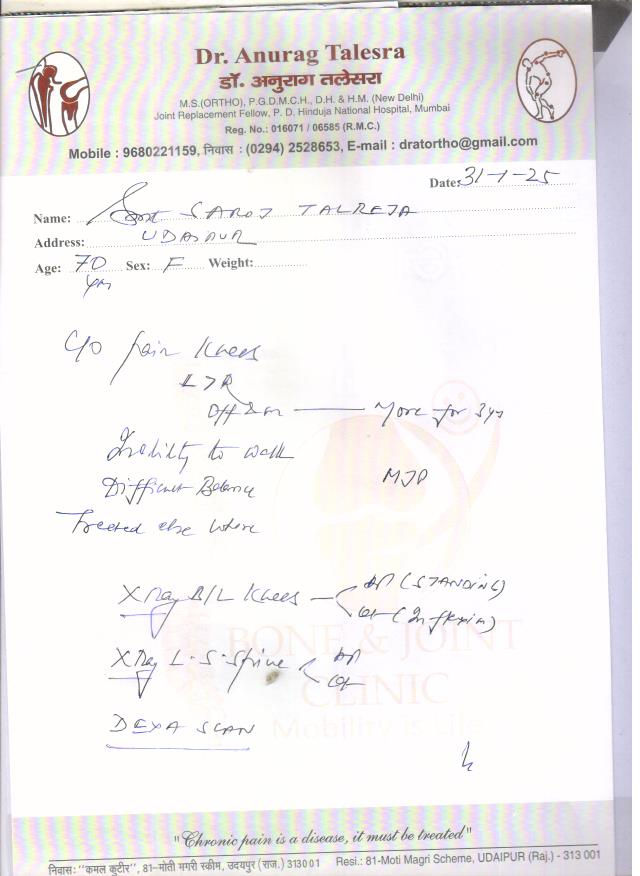 Dr. Anurag Talesra
डॉ. अनुराग तलेसरा
M.S.(ORTHO), P.G.D.M.C.H., D.H. & H.M. (New Delhi)
Joint Replacement Fellow, P. D. Hinduja National Hospital, Mumbai
Reg. No.: 016071 / 06585 (R.M.C.)
Mobile : 9680221159, निवास : (0294) 2528653, E-mail : dratortho@gmail.com
Date: 31-1-25
Name: Smt SAROJ TALREJA
Address: UDAIPUR
Age: 70 Sex: F Weight:
yrs
C/O pain Knees
L > R
Off & on — More for 3ys
Inability to walk
Difficult Balance
MJD
Treated else where
X Ray B/L Knees AP (STANDING)
Lat (In flexion)
X Ray L-S-Spine AP
Lat
DEXA SCAN
BONE & JOINT
CLINIC
Mobility is Life
"Chronic pain is a disease, it must be treated"
निवास: "कमल कुटीर", 81-मोती मगरी स्कीम, उदयपुर (राज.) 313001 Resi.: 81-Moti Magri Scheme, UDAIPUR (Raj.) - 313 001